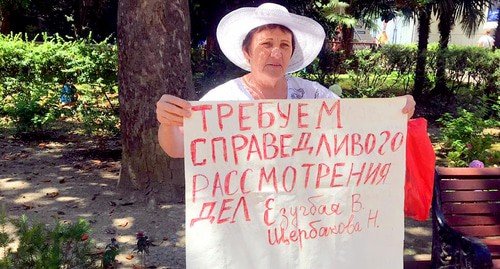 ТРЕБУЕМ
СПРАВЕДЛИВОГО
РАССМОТРЕНИЯ
ДЕЛ Езугбая В.
Щербакова Н.